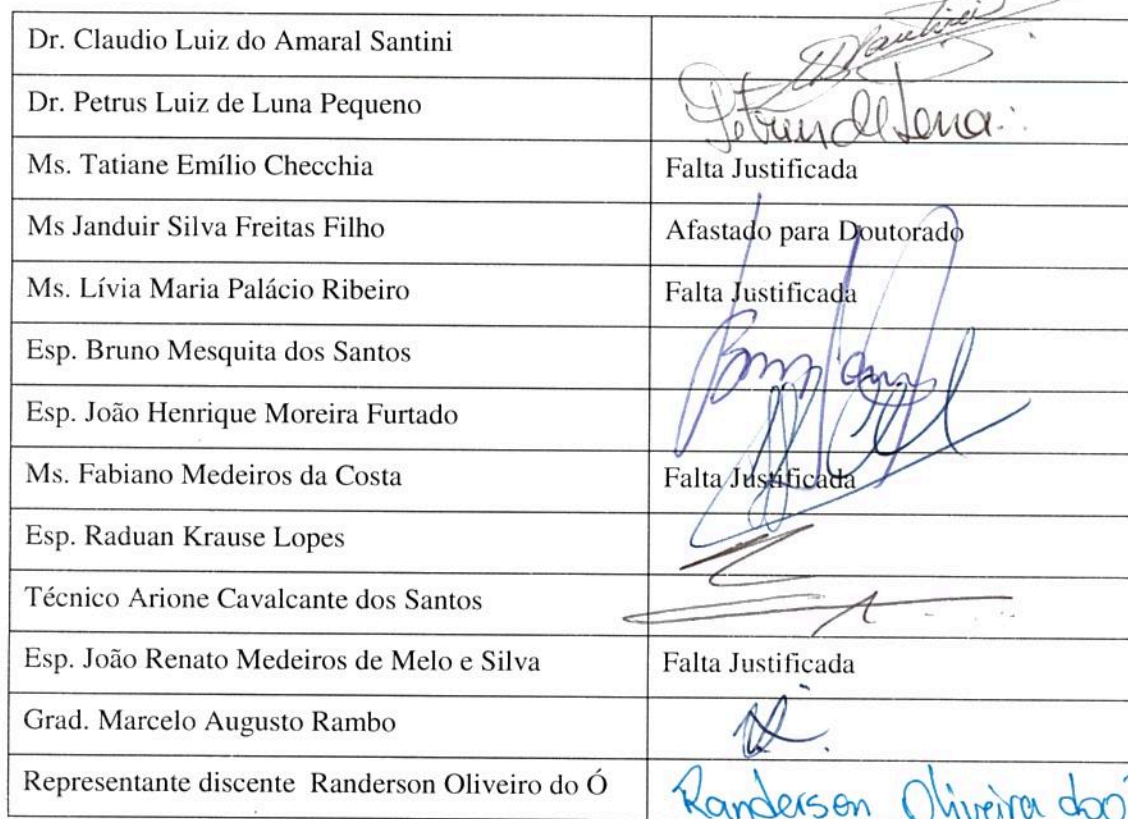 Dr. Claudio Luiz do Amaral Santini
Dr. Petrus Luiz de Luna Pequeno
Ms. Tatiane Emílio Checchia Falta Justificada
Ms Janduir Silva Freitas Filho Afastado para Doutorado
Ms. Lívia Maria Palácio Ribeiro Falta Justificada
Esp. Bruno Mesquita dos Santos
Esp. João Henrique Moreira Furtado
Ms. Fabiano Medeiros da Costa Falta Justificada
Esp. Raduan Krause Lopes
Técnico Arione Cavalcante dos Santos
Esp. João Renato Medeiros de Melo e Silva Falta Justificada
Grad. Marcelo Augusto Rambo
Representante discente Randerson Oliveiro do Ó Randerson Oliveira do Ó